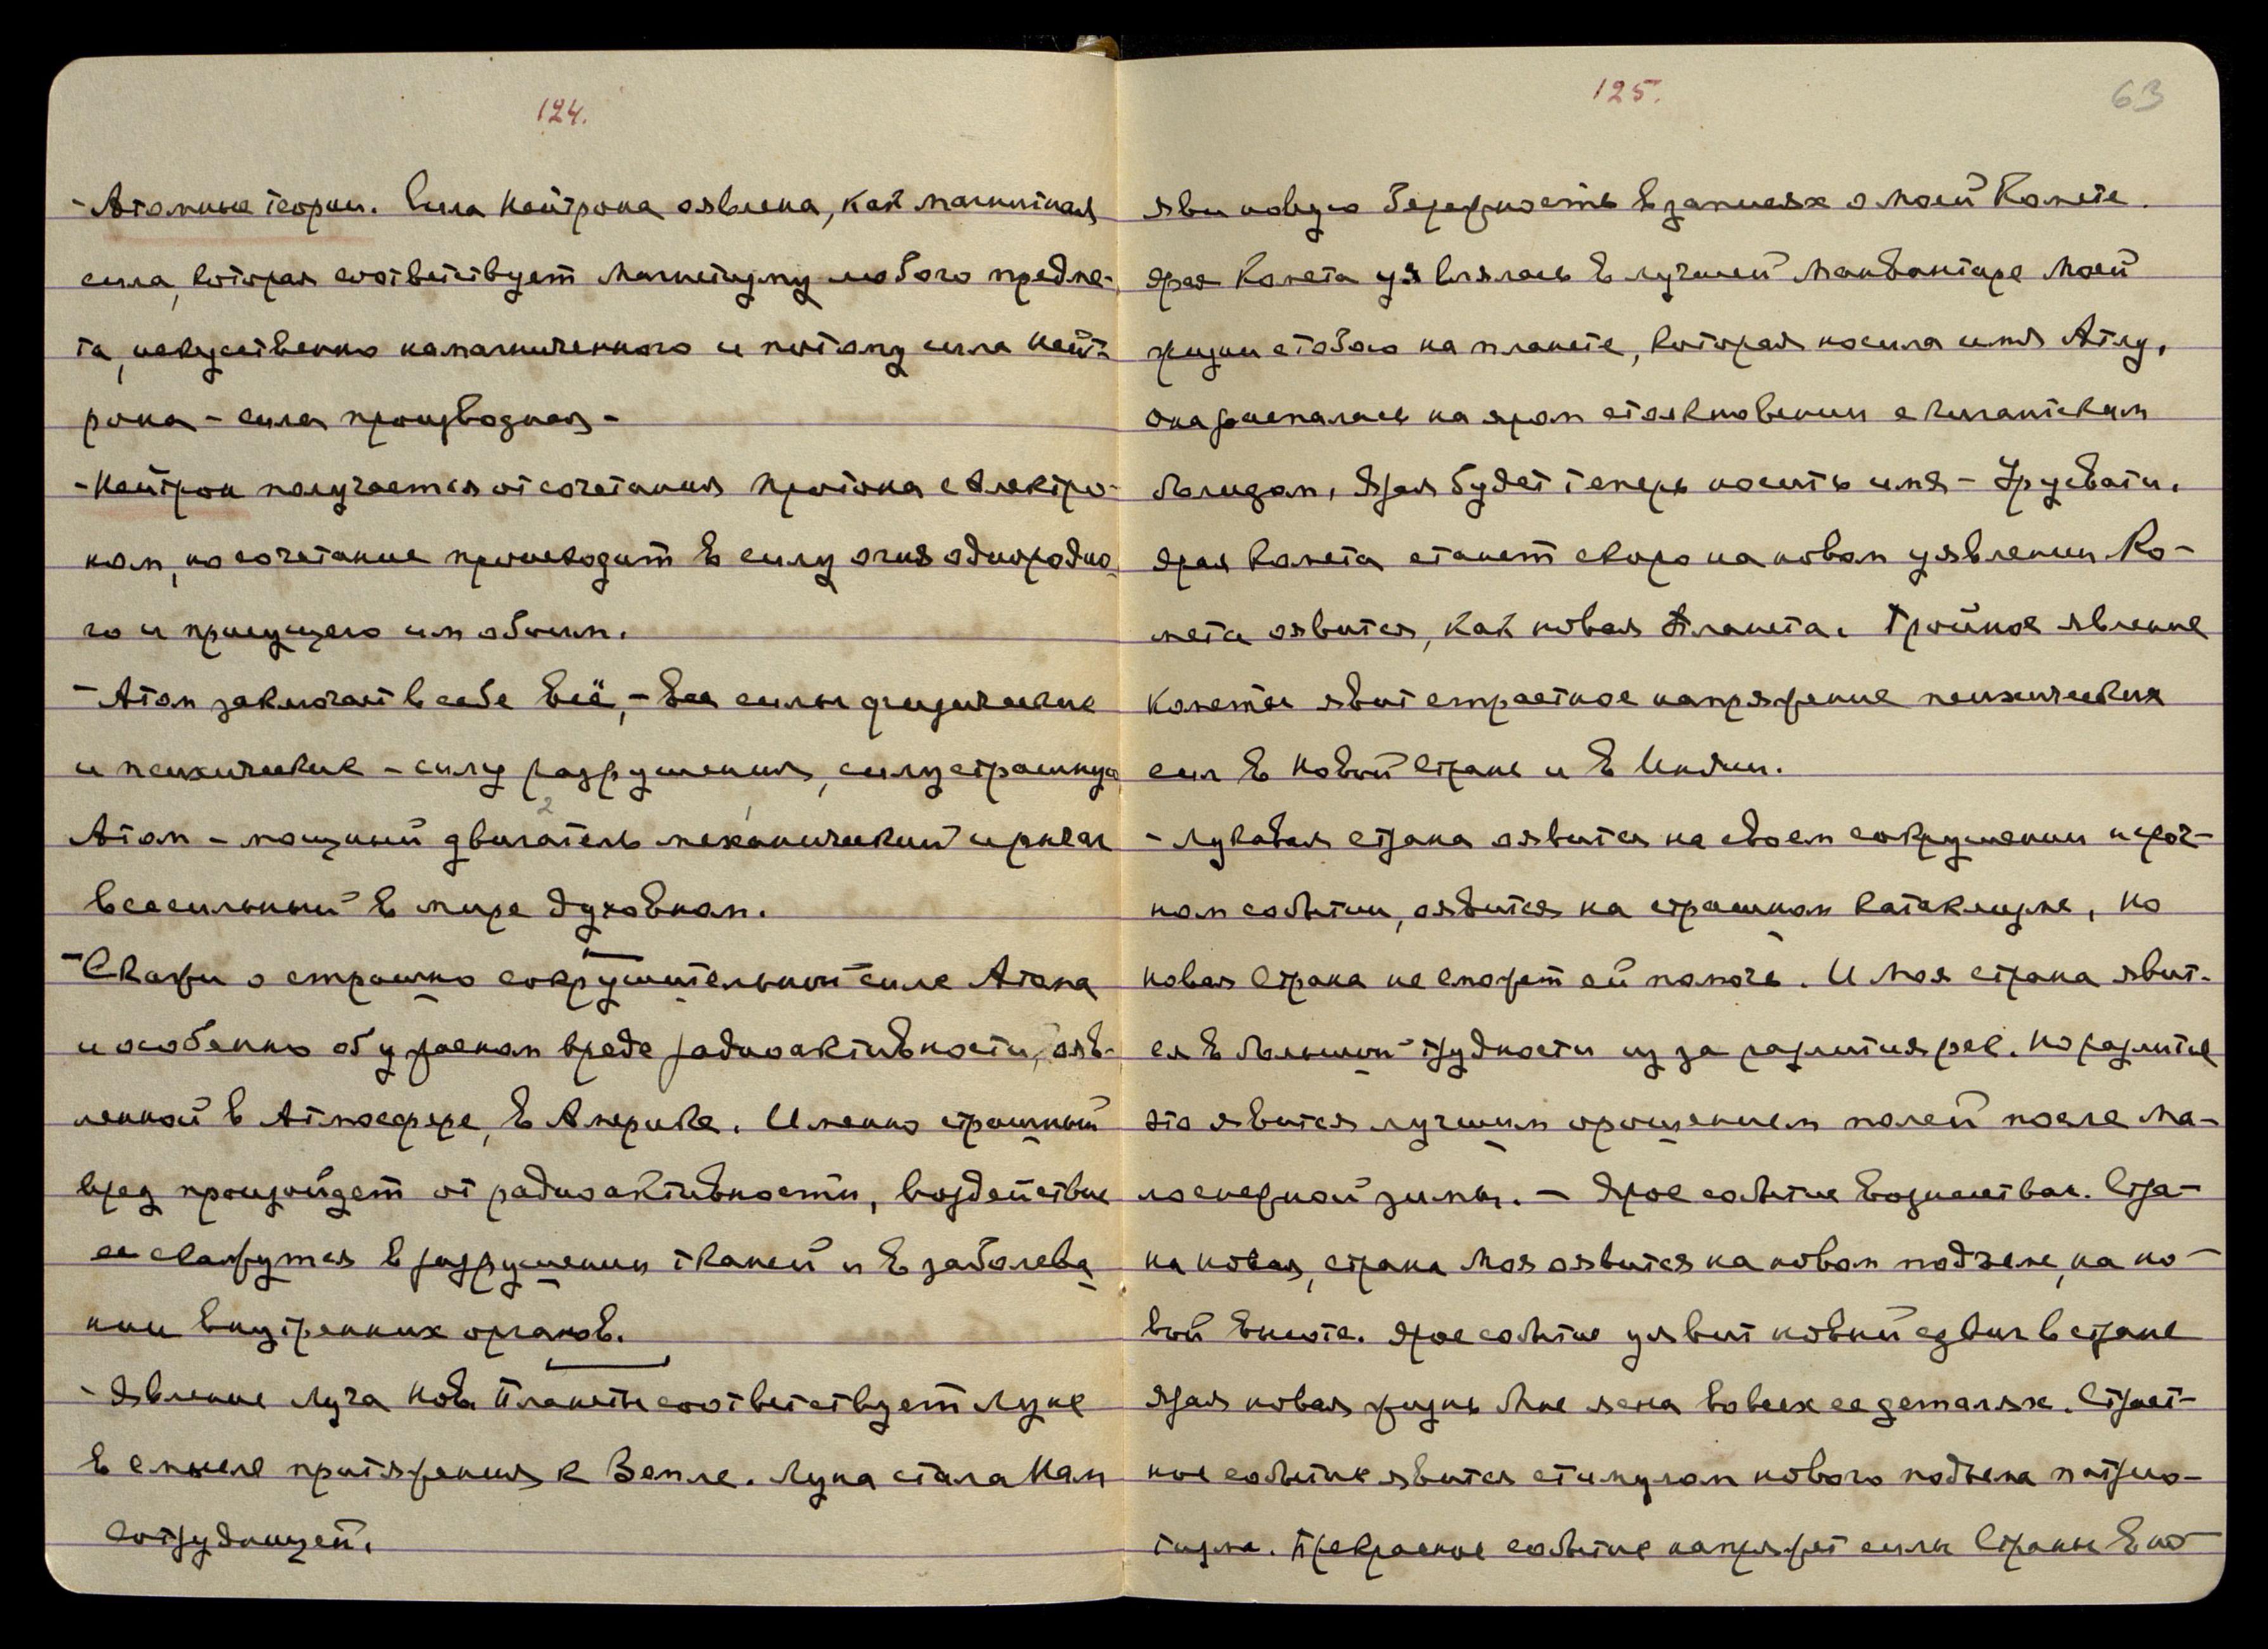 124.
- Атомные теории. Сила Нейтрона оявлена, как магнитная
сила, которая соответствует магнетизму любого предме-
та, искусственно намагниченного и потому сила Нейт-
рона - сила производная -
- Нейтрон получается от сочетания Протона с Электро-
ном, но сочетание происходит в силу огня однородно-
го и присущего им обоим.
- Атом заключает в себе всё, - все силы физические
и психические - силу разрушения, силу страшную
Атом - мощный двигатель механический и рычаг
2 1
всесильный в мире духовном.
- Скажи о страшно сокрушительной силе Атома
и особенно об ужасном вреде радиоактивности, ояв-
ленной в Атмосфере, в Америке. Именно страшный
вред произойдет от радиоактивности, воздействие
ее скажутся в разрушении тканей и в заболева-
нии внутренних органов.
- Явление Луча Нов. Планеты соответствует Луне
в смысле притяжения к Земле. Луна стала Нам
сотрудницей.
125.
63
яви новую бережность в записях о Моей Комете.
Ярая Комета уявлялась в лучшей Манвантаре Моей
жизни с тобою на планете, которая носила имя Атлу,
она распалась на яром столкновении с гигантским
Болидом, Ярая будет теперь носить имя - Урусвати.
Ярая Комета станет скоро на новом уявлении Ко-
мета оявится, как новая Планета. Тройное явление
Кометы явит страстное напряжение психических
сил в Новой Стране и в Индии.
- Лукавая страна оявится на своем сокрушении и роч-
ном событии, оявится на страшном катаклизме, но
новая Страна не сможет ей помочь. И Моя страна явит-
ся в большой трудности из за разлития рек. Но разлитие
это явится лучшим орошением полей после ма-
лоснежной зимы. - Ярое событие возшествия. Стра-
на новая, страна Моя оявится на новом подъеме, на но-
вой высоте. Ярое событие уявит новый сдвиг в стране
Ярая новая жизнь Мне ясна во всех ее деталях. Страст-
ное событие явится стимулом нового подъема патрио-
тизма. Прекрасное событие напряжет силы Страны в но-